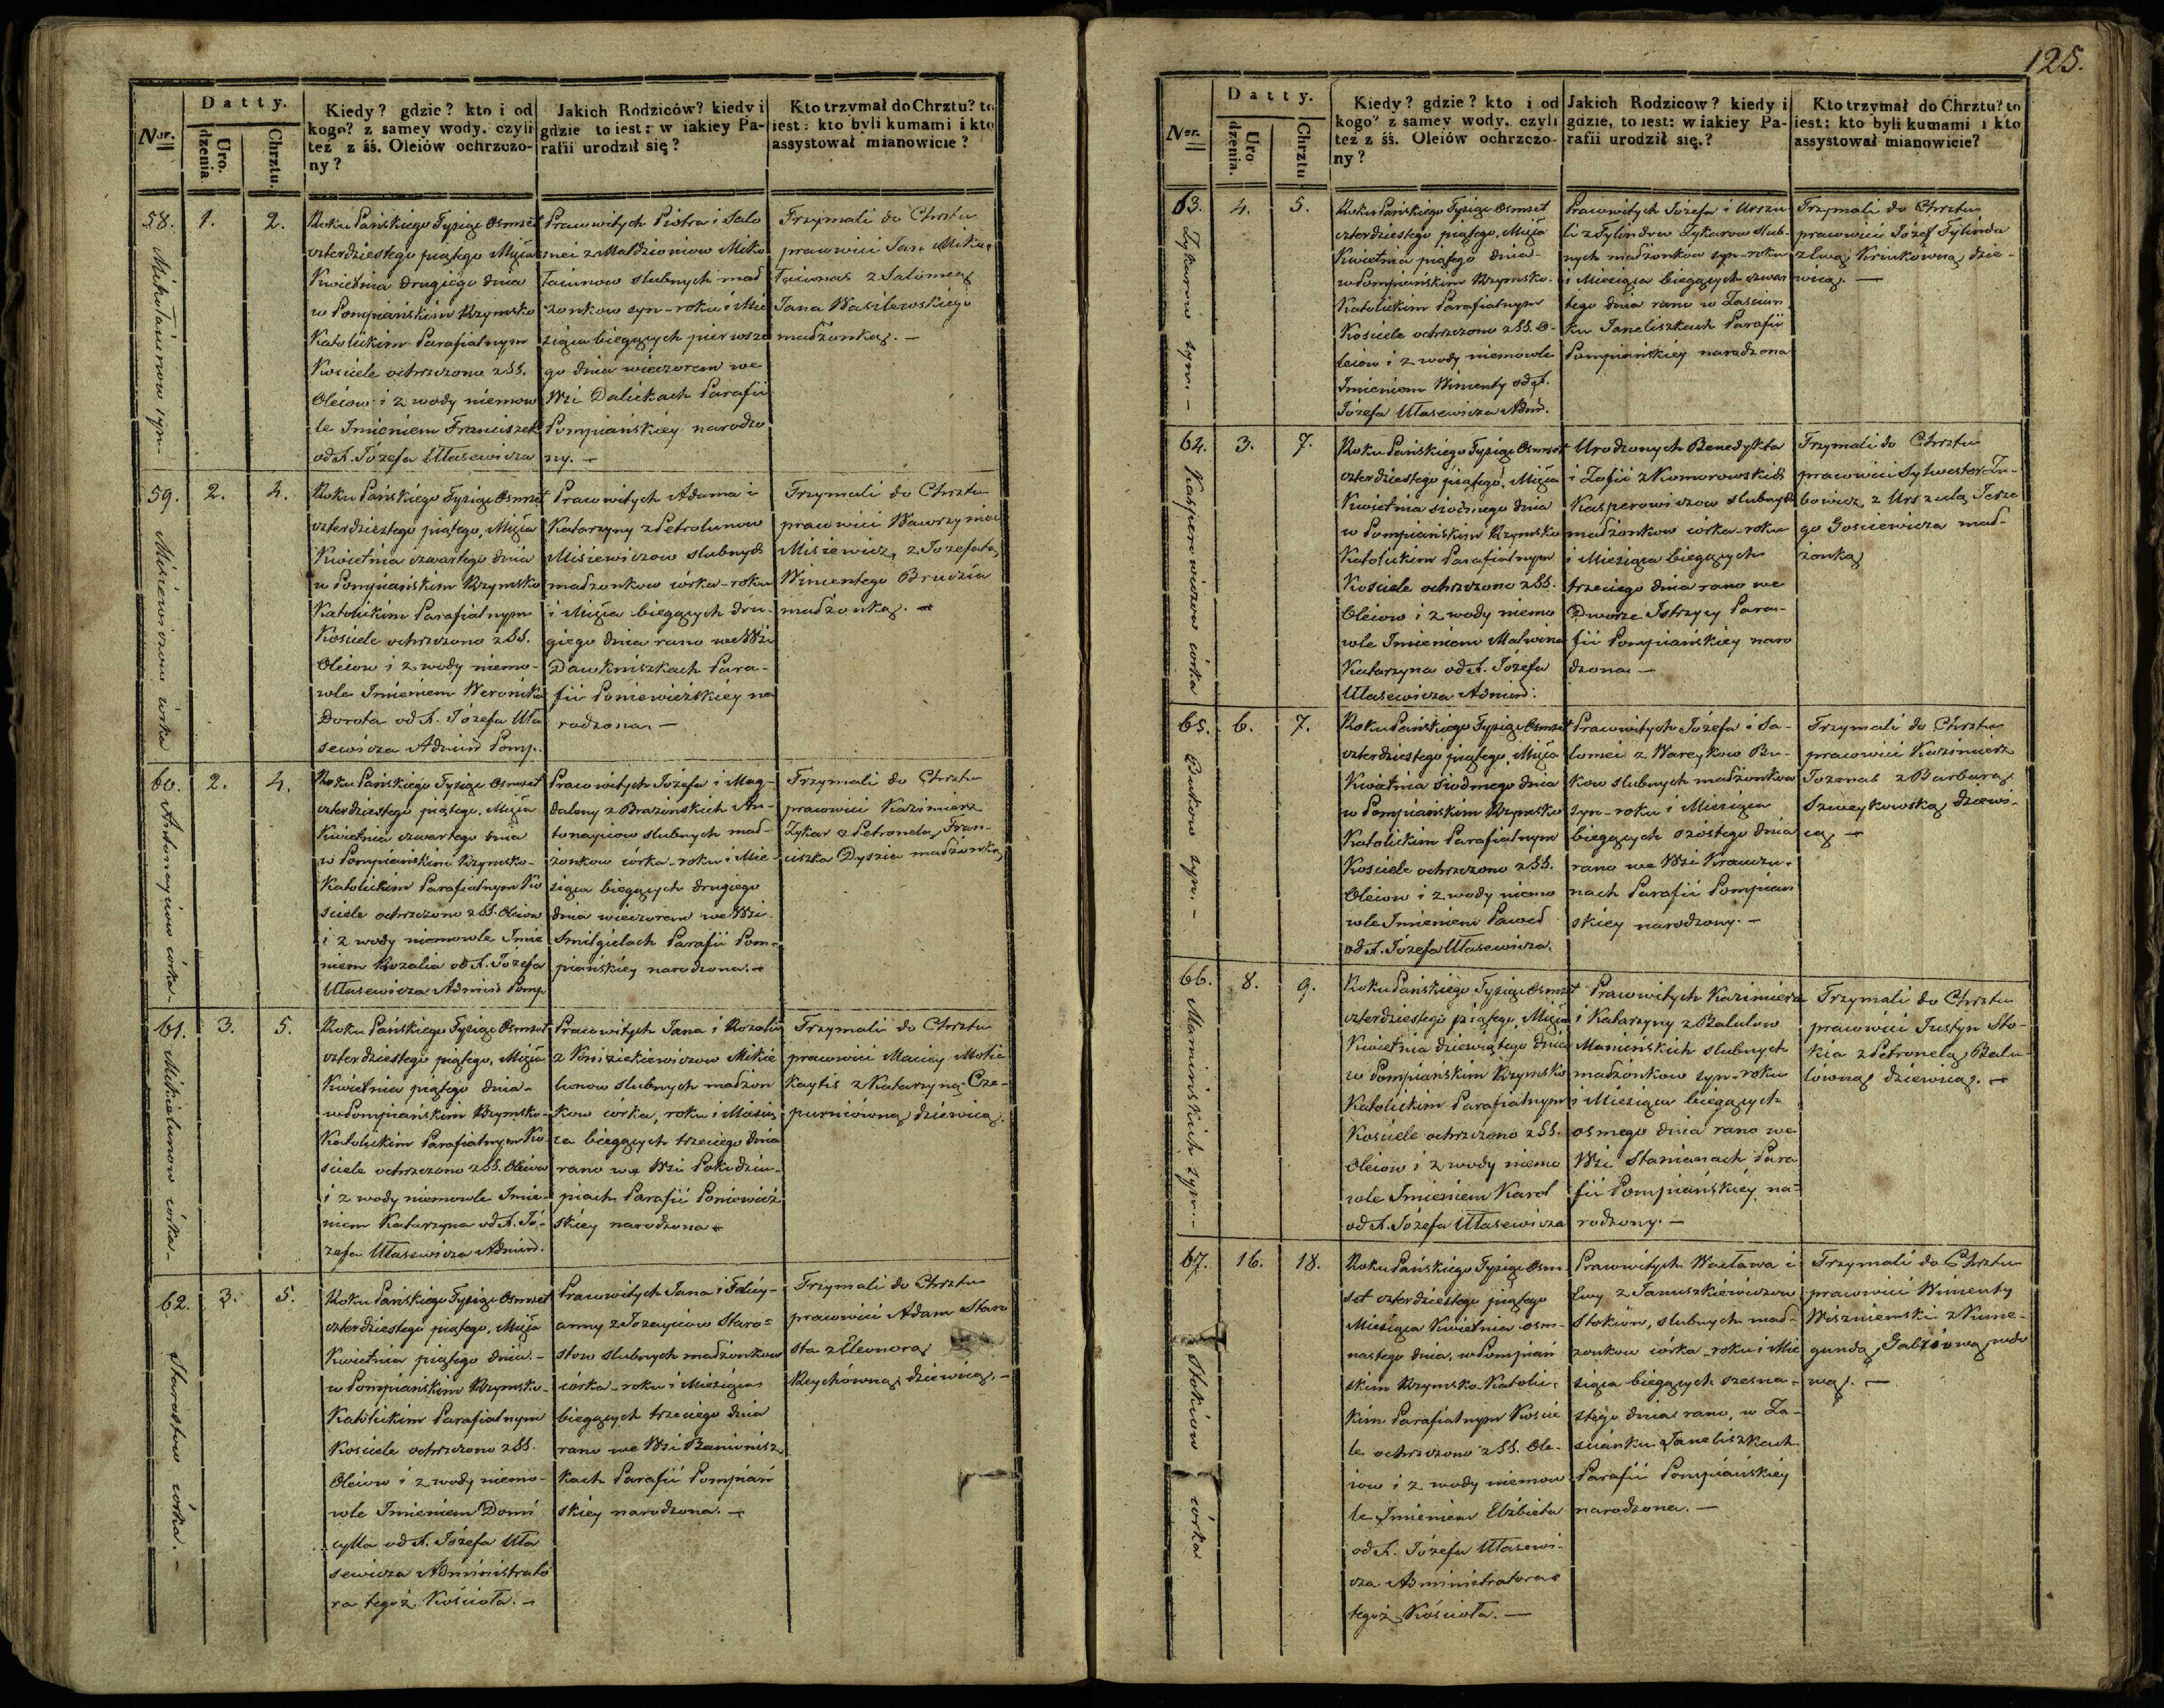 Datty.
Ner.
Uro.
dzenia.
Chrztu.
Kiedy? gdzie? kto i od
kogo? z samey wody, czyli
też z śś. Oleiów ochrzczo-
ny?
Jakich Rodziców? kiedy i
gdzie to iest: w iakiey Pa-
rafii urodził się?
Kto trzymał do Chrztu? to
iest: kto byli kumami i kto
assystował mianowicie?
58.
1.
2.
Mikołaiunow syn-
Roku Pańskiego Tysiąc Osmset
czterdziestego piątego Mięsia
Kwietnia drugiego dnia
w Pompiańskim Rzymsko
Katolickim Parafialnym
Kościele ochrzczono z SS.
Oleiow i z wody niemow
le Imieniem Franciszek
od X. Józefa Ułasewicza
Prawowitych Piotra i Salo
mei z Małdzioniow Miko
łaiunow slubnych mał
zonkow syn - roku i Mie
siąca biegących pierwsze
go dnia wieczorem we
Wsi Dalickach Parafii
Pompiańskiey narodzo
ny. -
Trzymali do Chrztu
prawowici Jan Miku-
łaionas z Salomeą
Jana Wasilewskiego
małżonką. -
59.
2.
4.
Misiewiczow córka
Roku Pańskiego Tysiąc Osmset
czterdziestego piątego, Mięsia
Kwietnia czwartego dnia
w Pompiańskim Rzymsko
Katolickim Parafialnym
Kościele ochrzczono z SS.
Oleiow i z wody niemo-
wle Imieniem Weronika
Dorota od X. Józefa Uła
sewicza Admin Pomp.
Prawowitych Adama i
Katarzyny z Petrolunow
Misiewiczow slubnych
małzonkow córka - roku
i Mięsia biegących dru-
giego dnia rano we Wsi
Dawkniszkach Para-
fii Poniewiżskiey na
rodzona. -
Trzymali do Chrztu
prawowici Wawrzyniec
Misiewicz, z Jozefatą
Wincentego Brudzia
małżonką. -
60.
2.
4.
Antonayciow córka-
Roku Pańskiego Tysiąc Osmset
czterdziestego piątego, Mięsia
Kwietnia czwartego dnia
w Pompiańskim Rzymsko-
Katolickim Parafialnym Ko
ściele ochrzczono z SS. Oleiow
i z wody niemowle Imie
niem Rozalia od X. Józefa
Ułasewicza Admin Pomp
Prawowitych Józefa i Mag-
daleny z Brazinskich An-
tonayciow slubnych mał-
żonkow córka - roku i Mie-
siąca biegących drugiego
dnia wieczorem we Wsi
Smilgielach Parafii Pom-
piańskiey narodzona. -
Trzymali do Chrztu
prawowici Kazimierz
Zykar z Petronelą Fran-
ciszka Dyszia małżonką
61.
3.
5.
Mikielunow córka-
Roku Pańskiego Tysiąc Osmset
czterdziestego piątego, Mięsia
Kwietnia piątego dnia-
w Pompiańskim Rzymsko-
Katolickim Parafialnym Ko-
ściele ochrzczono z SS. Oleiow
i z wody niemowle Imie-
niem Katarzyna od X. Jó-
zefa Ułasewicza Admin.
Prawowitych Jana i Rozalii
z Mikie
lunow slubnych małżon
kow córka, roku i Miesią
ca biegących trzeciego dnia
rano we Wsi Pokudziu-
piach Parafii Poniewież
skiey narodzona -
Trzymali do Chrztu
prawowici Maciey Motie
kaytis z Katarzyną Cze-
purniówną dziewicą.
62.
3.
5.
Starostow córka. -
Roku Pańskiego Tysiąc Osmset
czterdziestego piątego, Mięsia
Kwietnia piątego dnia. -
w Pompiańskim Rzymsko-
Katolickim Parafialnym
Kościele ochrzczono z SS.
Oleiow i z wody niemo-
wle Imieniem Domi
cylla od X. Józefa Uła
sewicza Administrato
ra tegoż Kościoła. -
Prawowitych Jana i Felicy-
anny z Jozayciow Staro=
stow slubnych małżonkow
córka - roku i Miesiąca
biegących trzeciego dnia
rano we Wsi Banionisz
kach Parafii Pompiań
skiey narodzona. -
Trzymali do Chrztu
prawowici Adam Staro
sta z Eleonorą
Reychówną dziewicą. -
125.
Datty.
Ner.
Uro
dzenia.
Chrztu
Kiedy? gdzie? kto i od
kogo? z samey wody, czyli
też z śś. Oleiów ochrzczo-
ny?
Jakich Rodzicow? kiedy i
gdzie, to iest: w iakiey Pa-
rafii urodził się.?
Kto trzymał do Chrztu? to
iest: kto byli kumami i kto
assystował mianowicie?
63.
4.
5.
Zykarow syn. -
Roku Pańskiego Tysiąc Osmset
czterdziestego piątego, Mięsia
Kwietnia piątego dnia-
w Pompiańskim Rzymsko-
Katolickim Parafialnym
Kościele ochrzczono z SS. O-
leiow i z wody niemowle
Imieniem Wincenty od X.
Józefa Ułasewicza Admi.
Prawowitych Józefa i Urszu
li z Tylindow Zykarow slub-
nych małżonkow syn - roku
i Miesiąca biegących czwar
tego dnia rano w Zascian
ku Janeliszkach Parafii
Pompiańskiey narodzona
Trzymali do Chrztu
prawowici Józef Tylinda
z Ewą Krinkówną dzie-
wicą. -
64.
3.
7.
Kasperowiczow córka
Roku Pańskiego Tysiąc Osmset
czterdziestego piątego, Mięsia
Kwietnia siodmego dnia
w Pompiańskim Rzymsko
Katolickim Parafialnym
Kościele ochrzczono z SS.
Oleiow i z wody niemo
wle Imieniem Malwina
Katarzyna od X. Józefa
Ułasewicza Admin:
Urodzonych Benedykta
i Zofii z Komorowskich
Kasperowiczow slubnych
małżonkow córka - roku
i Miesiąca biegących
trzeciego dnia rano we
Dworze Istrzycy Para-
fii Pompiańskiey naro
dzona. -
Trzymali do Chrztu
prawowici Sylwester Zu-
bowicz z Urszulą Jerze
go Gosciewicza mał-
żonką
65.
6.
7.
Bukow syn. -
Roku Pańskiego Tysiąc Osmset
czterdziestego piątego, Mięsia
Kwietnia siodmego dnia
w Pompiańskim Rzymsko
Katolickim Parafialnym
Kościele ochrzczono z SS.
Oleiow i z wody niemo
wle Imieniem Paweł
od X. Józefa Ułasewicza.
Prawowitych Józefa i Sa-
lomei z Wareykow Bu-
kow slubnych małżonkow
syn - roku i Miesiąca
biegących szóstego dnia
rano we Wsi Krawczu-
nach Parafii Pompian
skiey narodzony. -
Trzymali do Chrztu
prawowici Kazimierz
Jozenas z Barbarą
Szweykowską dziewi-
cą. -
66.
8.
9.
Maminskich syn. -
Roku Pańskiego Tysiąc Osmset
czterdziestego piątego, Mięsia
Kwietnia dziewiątego dnia
w Pompianskim Rzymsko
Katolickim Parafialnym
Kościele ochrzczono z SS.
Oleiow i z wody niemo
wle Imieniem Karol
od X. Józefa Ułasewicza
Prawowitych Kazimierza
i Katarzyny z Balulow
Maminskich slubnych
małżonkow syn - roku
i Miesiąca biegących
osmego dnia rano we
Wsi Stanianach Para
fii Pompiańskiey na=
rodzony. -
Trzymali do Chrztu
prawowici Justyn Sto-
kia z Petronelą Balu-
lówną dziewicą. -
67.
16.
18.
Stokiow córka
Roku Pańskiego Tysiąc Osm
set czterdziestego piątego
Miesiąca Kwietnia osm-
nastego dnia, w Pompiań
skim Rzymsko-Katolic-
kim Parafialnym Koscie
le ochrzczono z SS. Ole-
iow i z wody niemow
le Imieniem Elżbieta
od X. Józefa Ułasewi-
cza Administratora
tegoż Kościoła. -
Prawowitych Wacława i
Ewy z Januszkiewiczow
Stokiow, slubnych mał-
zonkow córka - roku i Mie
siąca biegących szesna-
stego dnia rano, w Za-
ścianku Janeliszkach
Parafii Pompiańskiey
narodzona. -
Trzymali do Chrztu
prawowici Wincenty
Wiszniewski z Kune-
gundą Gabsiową wdo
wą. -